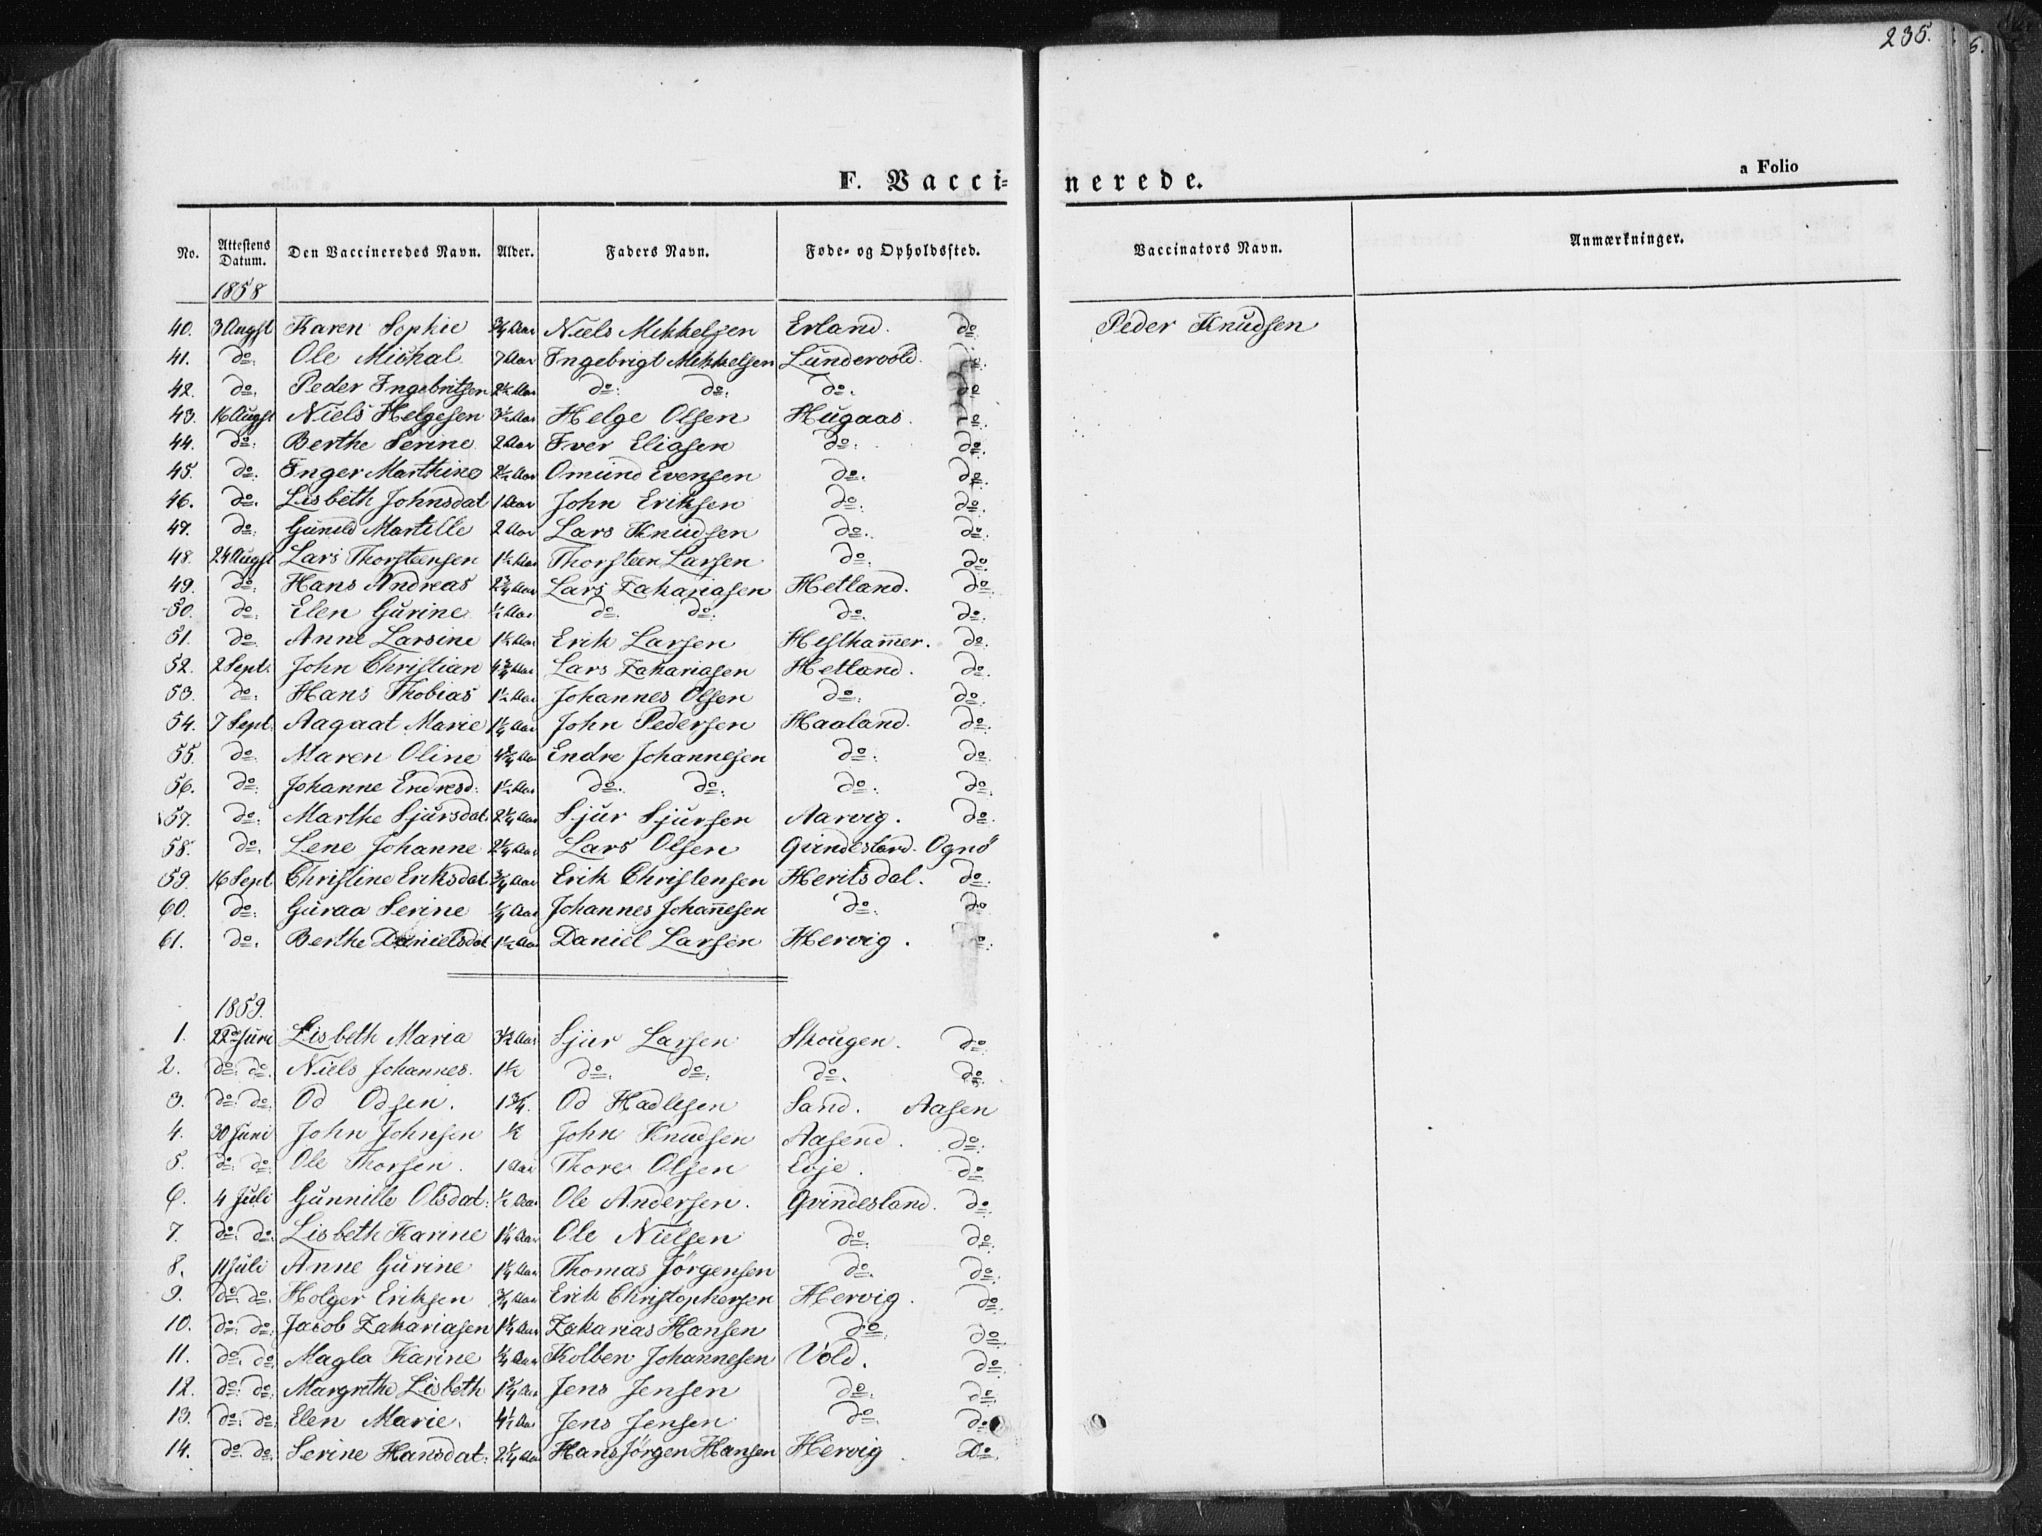 235.
F. Vacci= nerede.
a Folio
No. Attestens Datum. Den Vaccineredes Navn. Alder. Faders Navn. Føde- og Opholdssted. Vaccinators Navn. Anmærkninger.
1858
40. 3 Augst Karen Sophie 3/4 Aar Niels Mikkelsen Erland. do Peder Knudsen
41. do: Ole Michal 7 Aar Ingebrigt Mikkelsen Lundevold. do:
42. do: Peder Ingebritsen 2½ Aar do: do: do: do
43. 16 Augst Niels Helgesen 3½ Aar Helge Olsen Hugaas. do.
44. do: Berthe Serine 2 Aar Iver Eliasen do: do:
45. do: Inger Marthine 2½ Aar Omund Evensen do. do:
46. do. Lisbeth Johnsdat 1 Aar John Eriksen do: do:
47. do: Guneld Martille 2 Aar Lars Knudsen do. do:
48. 24 Augst Lars Thorsteensen 1½ Aar Thorsteen Larsen do: do:
49. do: Hans Andreas 2¾ Aar Lars Zakariasen Hetland. do:
50. do: Elen Gurine ½ Aar do: do: do. do:
51. do Anne Larsine 1½ Aar Erik Larsen Heslhammer. do:
52. 2 Sept: John Christian 4¾ Aar Lars Zakariasen Hetland. do:
53. do: Hans Thobias 1½ Aar Johannes Olsen do: do:
54. 7 Sept. Aagaat Marie 1¼ Aar John Pedersen Haaland. do:
55. do: Maren Oline 4¾ Aar Endre Johannesen do: do:
56. do: Johanne Endresd: 1½ Aar do: do: do: do:
57. do: Marthe Sjursdat. 2¼ Aar Sjur Sjursen Aarvig. do:
58. do. Lene Johanne 2¼ Aar Lars Olsen Gvindesland. Ognö
59. 16 Sept Christine Eriksdat ¾ Aar Erik Christensen Heritsdal. do:
60. do: Guraa Serine ¼ Aar Johannes Johannesen do: do
61. do. Berthe Danielsdat 1½ Aar Daniel Larsen Hervig. do:
1859.
1. 22de Juni Lisbeth Maria 3½ Aar Sjur Larsen Skougen. do:
2. do: do: Niels Johannes. 1½ do: do: do. do:
3. do: do: Od Odsen. 1 3/4. Od Hadlesen Sand. Aasen
4. 30 Juni John Johnsen ½ John Knudsen Aasend. do:
5. do: do: Ole Thorsen. 1 Aar Thore Olsen Evje. do:
6. 4 Juli Gunnille Olsdat: ½ Aar Ole Andersen. Gvindesland. do:
7. do: do: Lisbeth Karine 1¼ Aar Ole Nielsen do: do:
8. 11 Juli Anne Gurine 1¼ Aar Thomas Jörgensen do. do:
9. do: do: Holger Eriksen ¾ Aar Erik Christophersen Hervig. do:
10. do: do: Jacob Zakariasen 1¼ Aar Zakarias Hansen do. do:
11. do. do: Magla Karine ¼ Aar Kolben Johannesen Vold. do:
12. do: do: Margrethe Lisbeth 1¾ Aar Jens Jensen do: do:
13. do: do: Elen Marie. 4½ Aar Jens Jensen do: do:
14. do. do: Serine Hansdat: 2¼ Aar Hans Jörgen Hansen Hervig. Do.